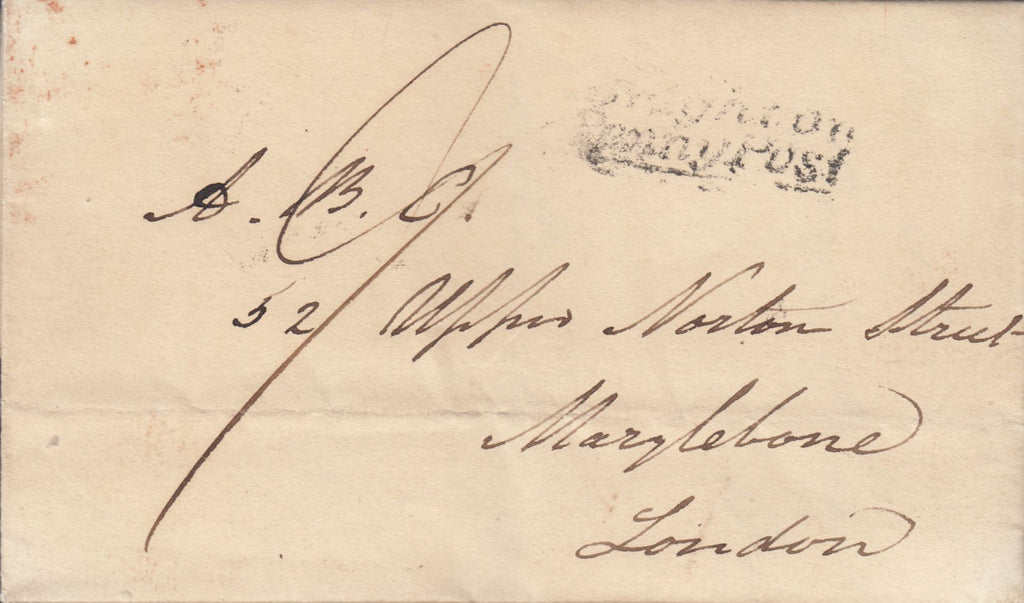 Brighton
Penny Post
A. B. C.
52 Upper Norton Street
Marylebone
London